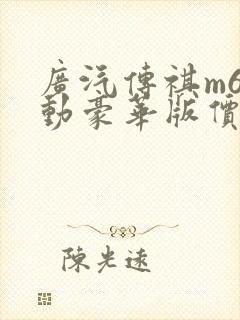 廣汽傳祺m6
動豪華版價
陳光遠